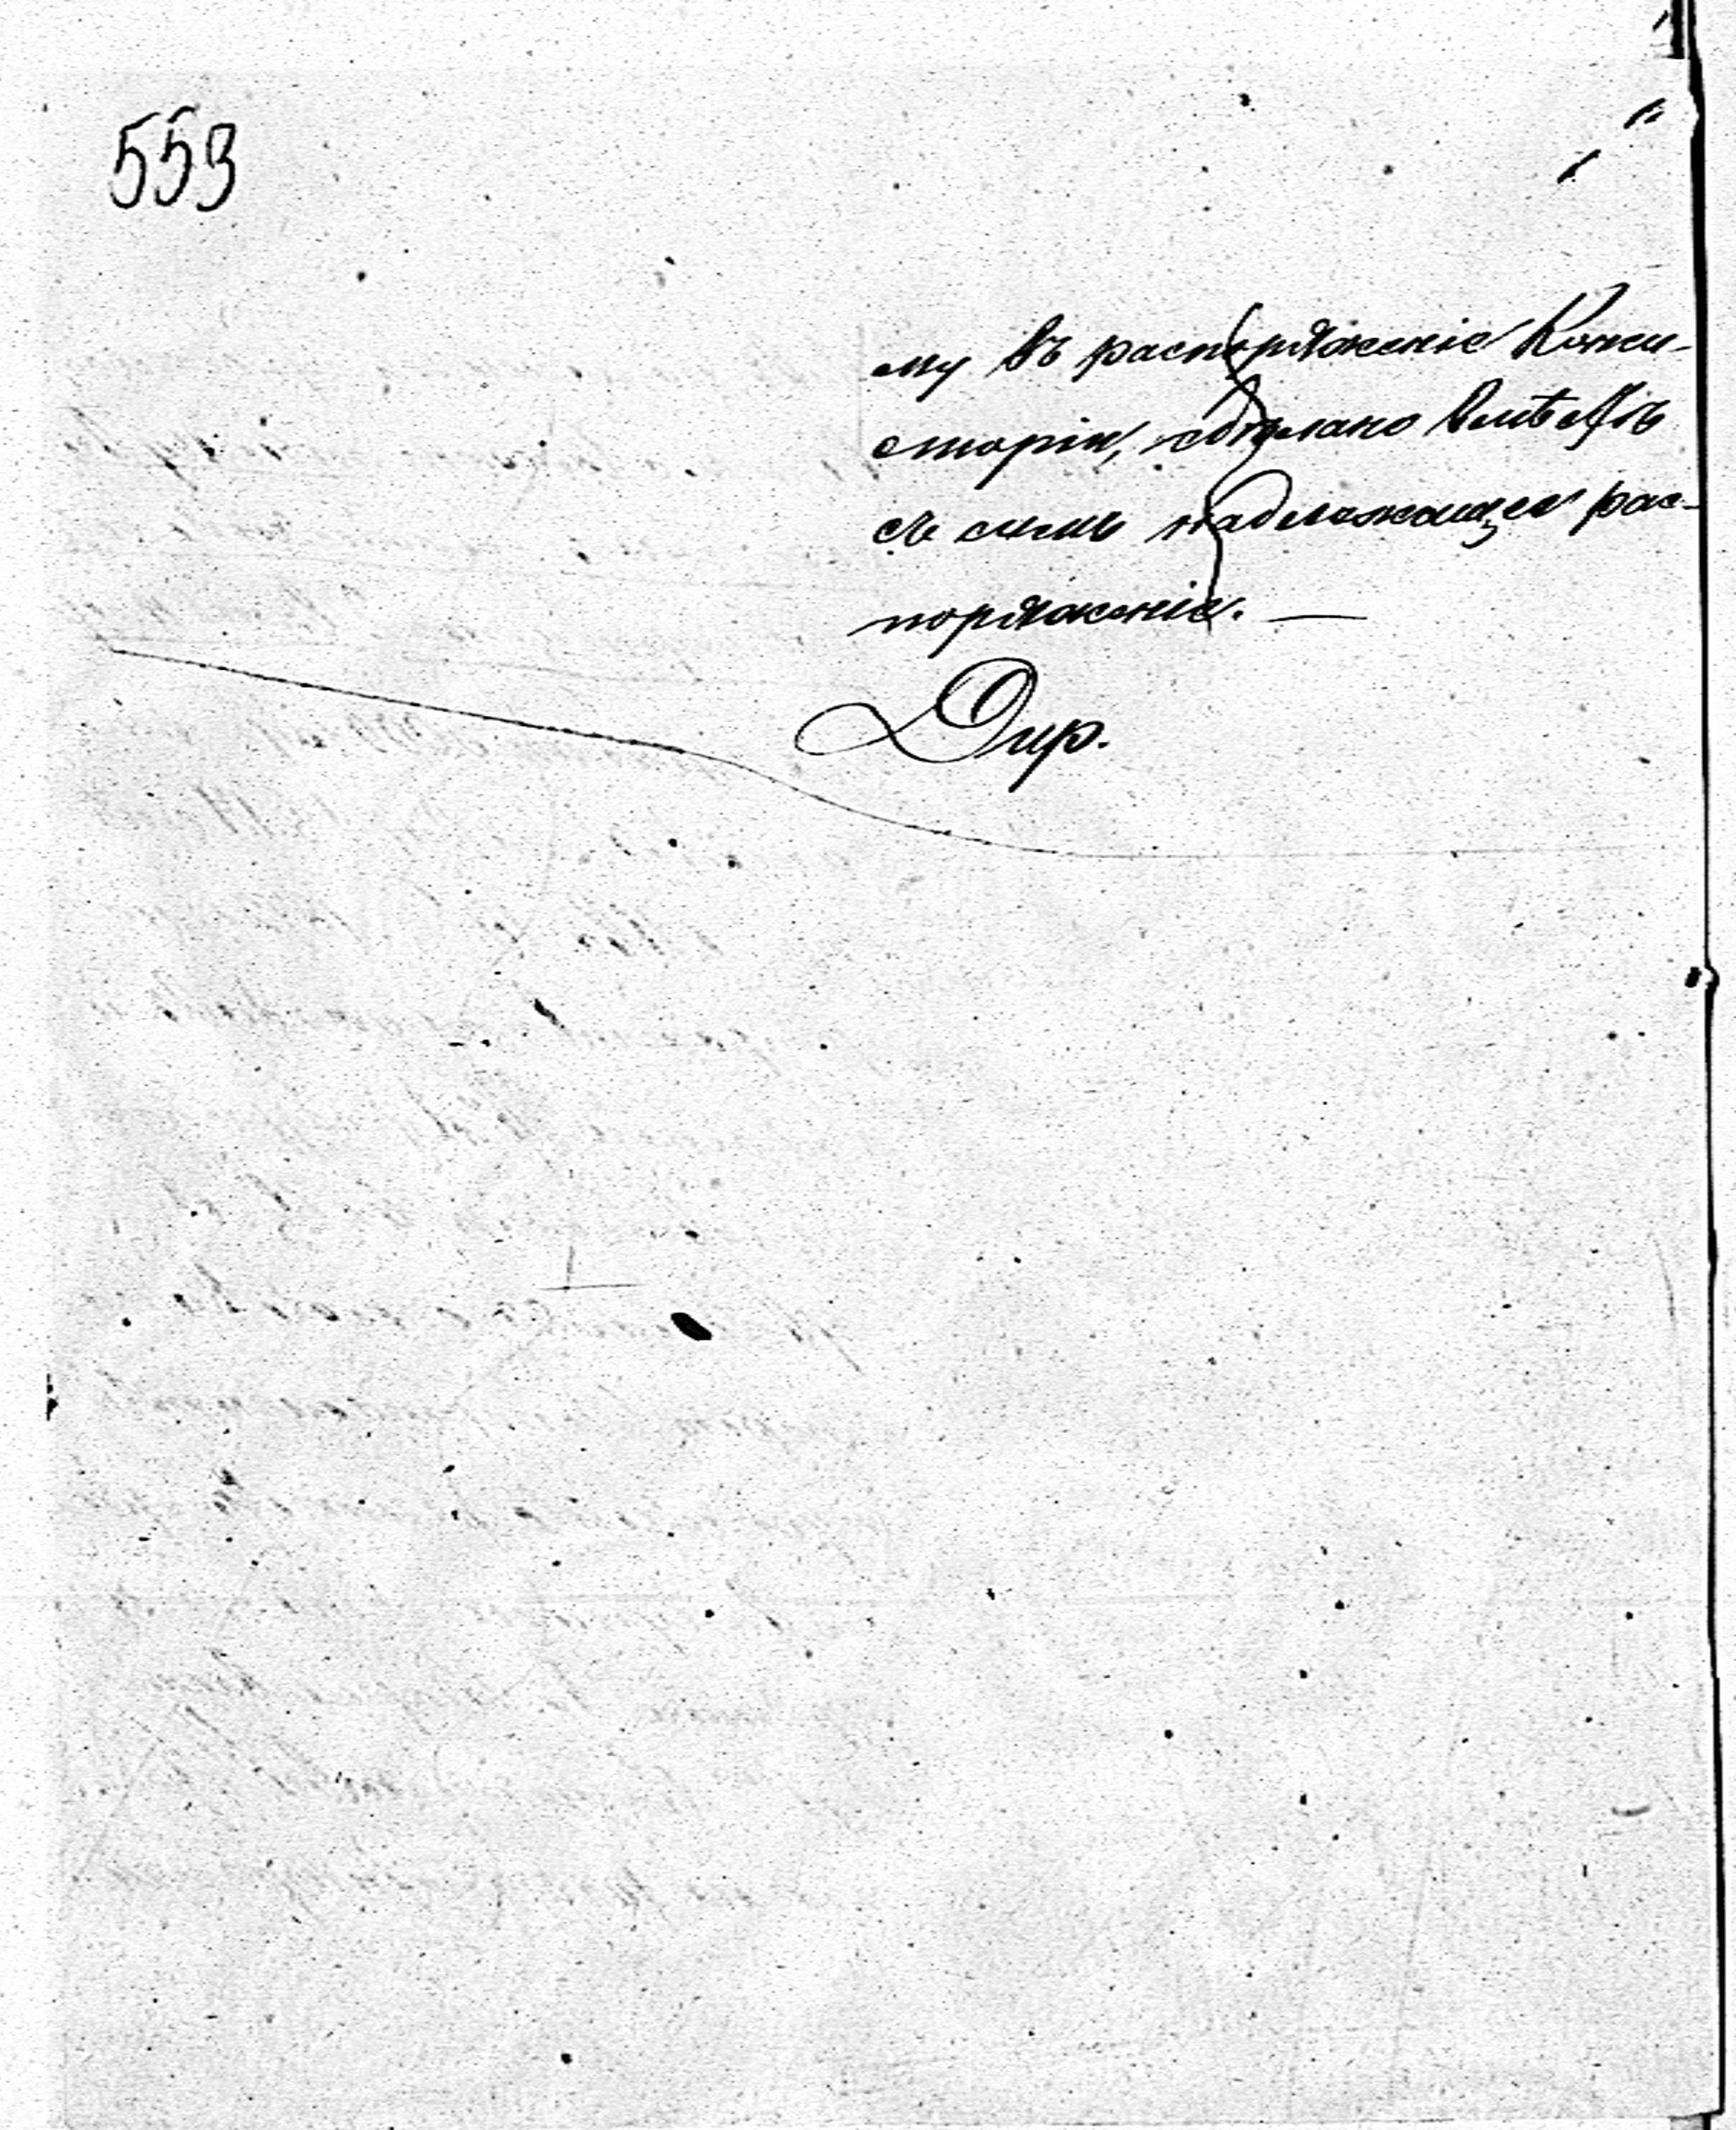 559
му въ распоряженіе Конси-
сторіи, сдѣлано вмѣстѣ
съ симъ надлежащее рас-
поряженіе. —
Дир.